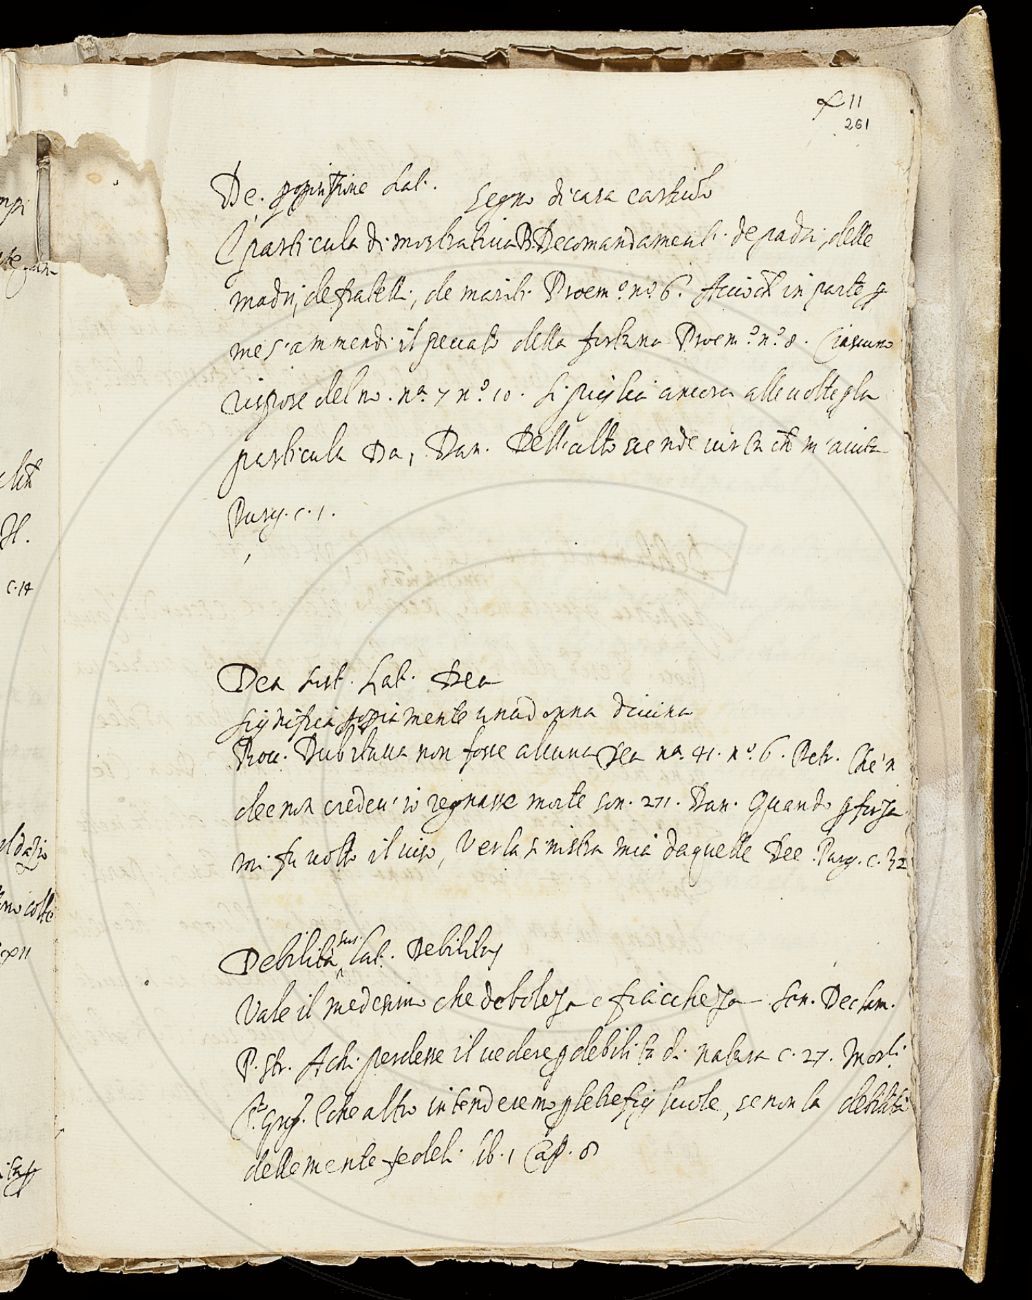 11
261
De. Lat. Segno di casa
E particula dimostrativa Decomandamenti. de padri, delle
madri, de fratelli, de mariti. Proem.º nº. 6. Acciò ch̃ in parte p
me s'ammendi il peccato della fortuna Proem.º nº. 8. Ciascuno
rispose del no. nª. 7 nº. 10. Si piglia ancora alle volte p la
particula Da, Dan. Dell'alto scende virtù ch̃ m'aiuta
Purg. c. 1.
Dea sust. Lat. Dea
Significa propriamente una donna divina
Bocc. Dubitava non fosse alcuna Dea nª. 41. nº. 6. Petr. Che'n
dee non credev'io regnasse morte son. 271. Dan. Quando p forza
mi fu volto il viso, Ver la sinistra mia da quelle Dee. Purg. c. 32
Debilità sus. Lat. Debilitas
Vale il medesimo che debolezza e fiacchezza Sen. Declam.
P. Str. Achi perdesse il vedere p debilità di natura c. 27. Morli.
S. Greg. E che altro intenderemo p le figliuole, se non la debilità
delle mente fedeli. lib. 1 Cap. 8
c. 14